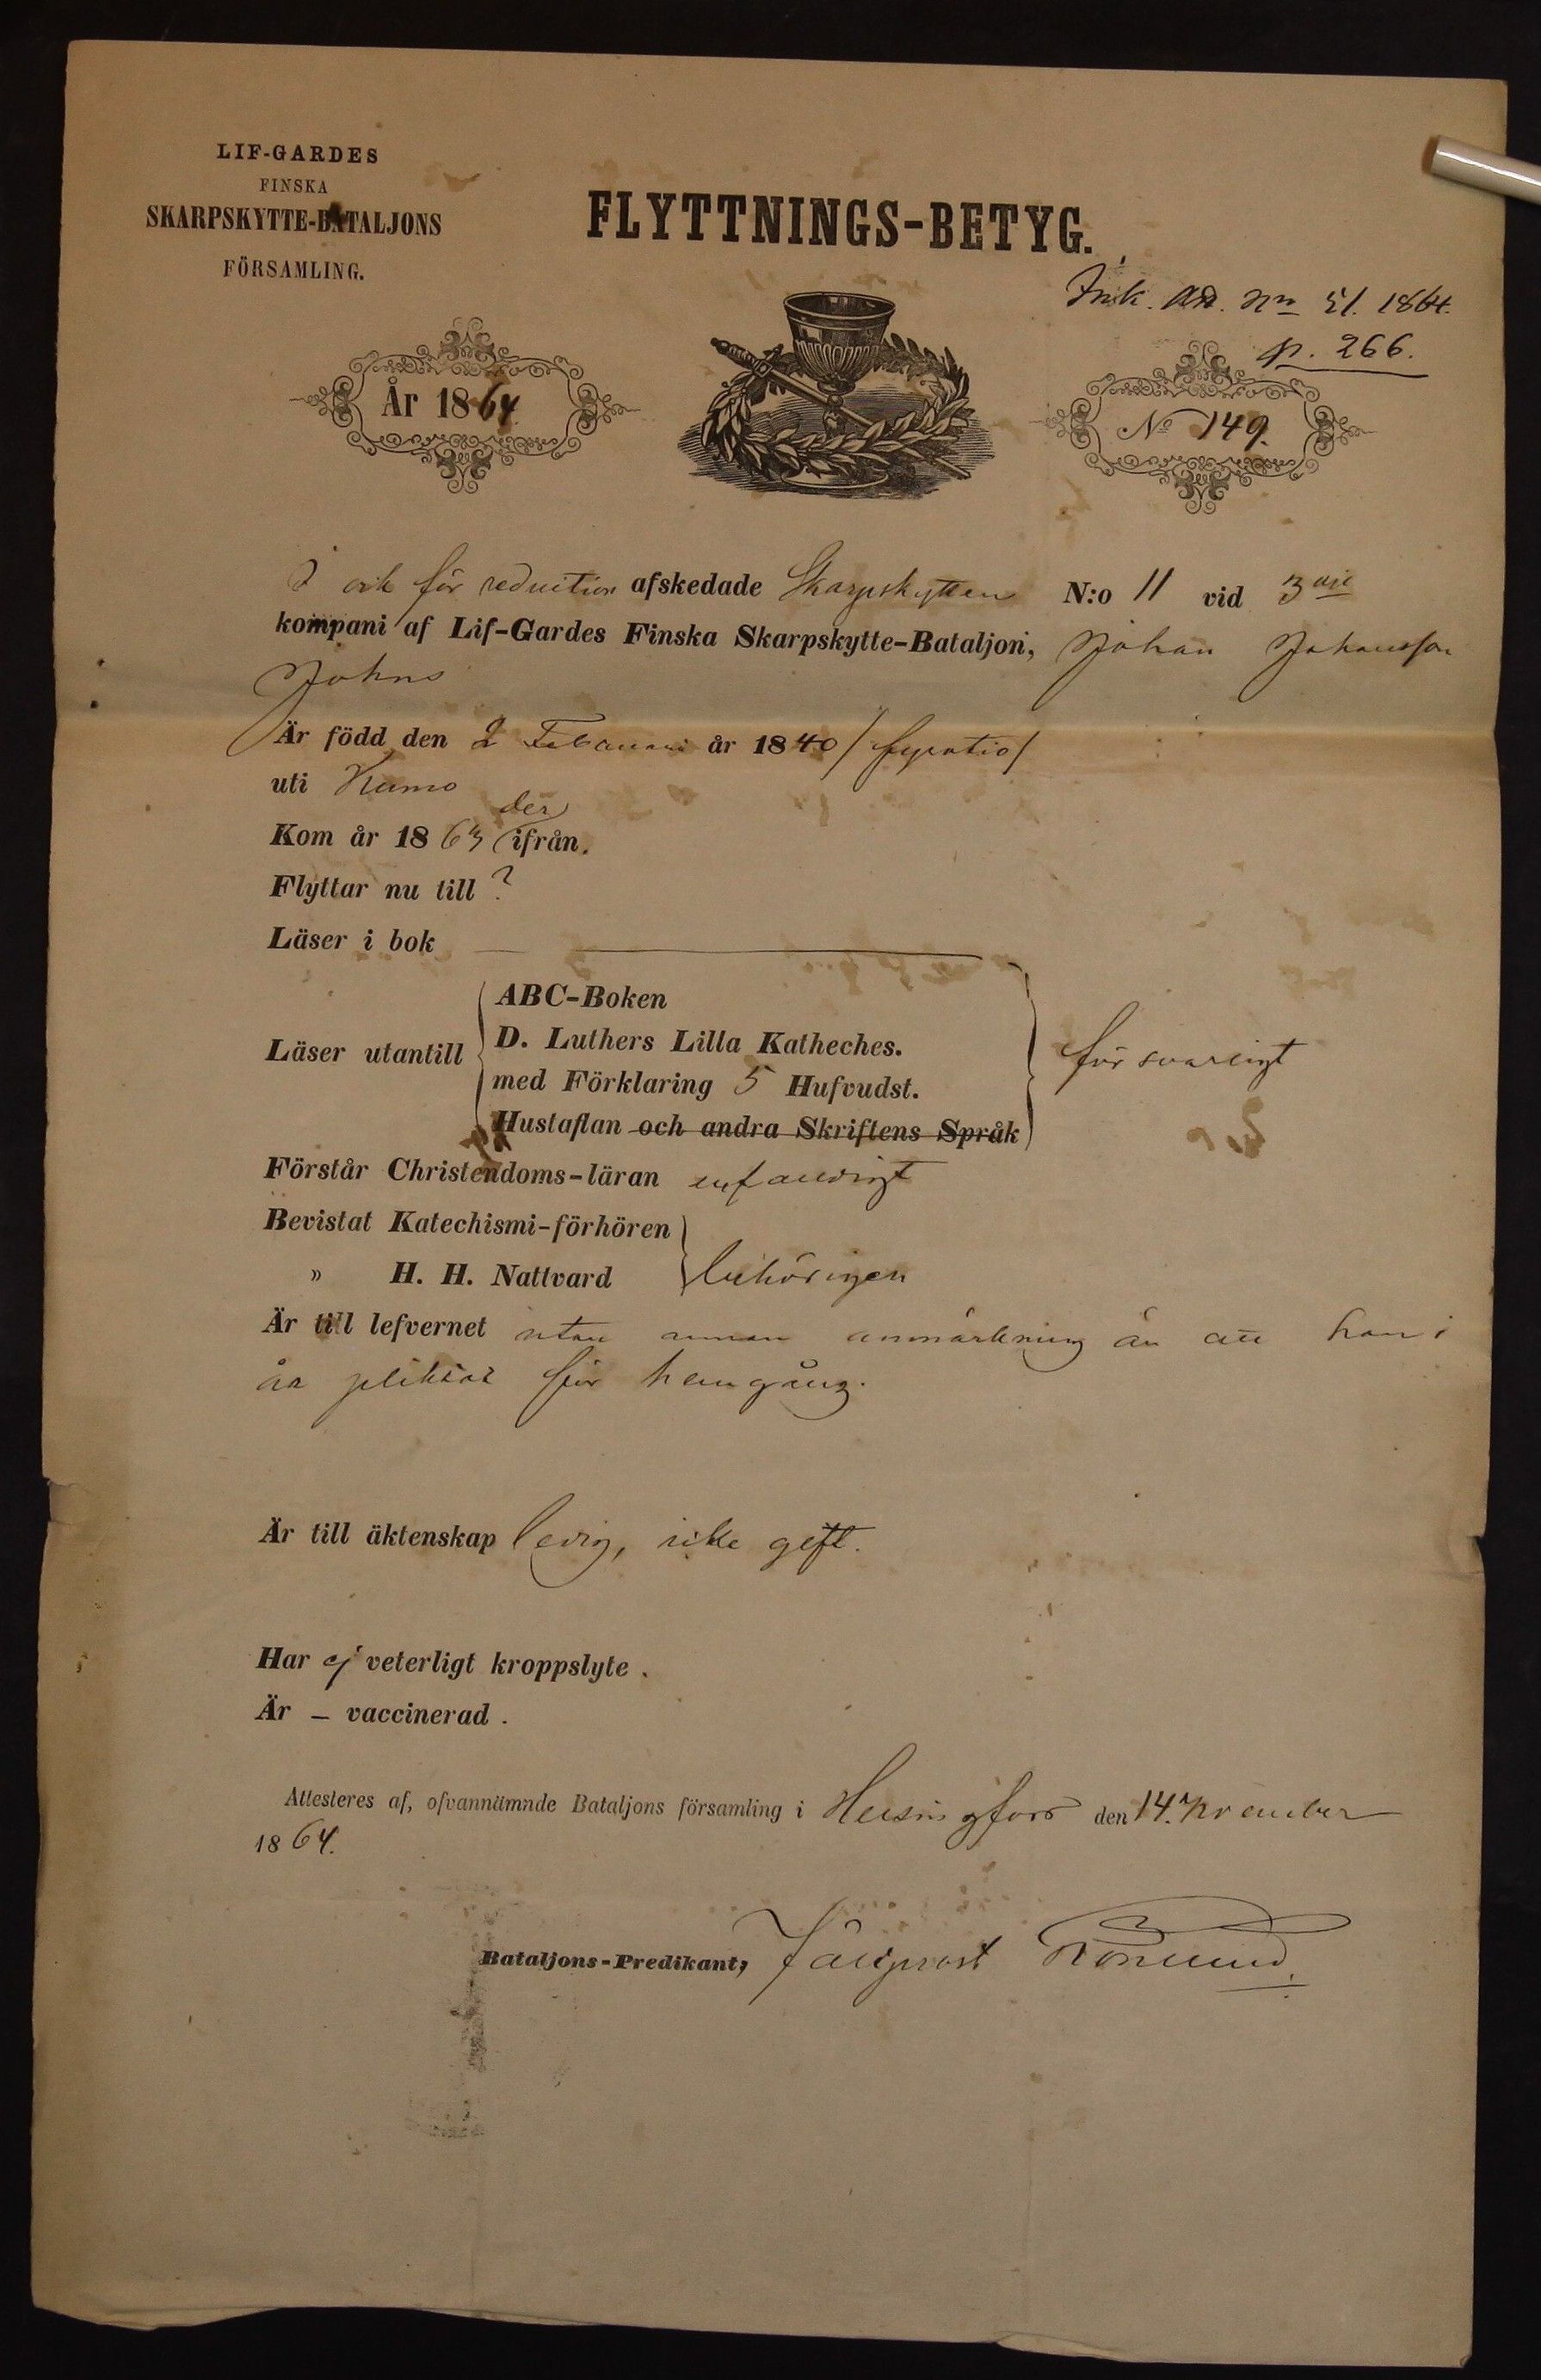 LIF-GARDES
FINSKA
SKARPSKYTTE-BATALJONS
FÖRSAMLING.
FLYTTNINGS-BETYG.
Ink. 51. 1864.
p. 266.
År 1864
No 149.
I och för reduction afskedade Skarpskytten N:o 11 vid 3dje
kompani af Lif-Gardes Finska Skarpskytte-Bataljon, Johan Johansson
Johns
Är född den 2 Februari år 1840 / fyratio /
uti Kumo
Kom år 1863 der ifrån.
Flyttar nu till ?
Läser i bok —
Läser utantill
ABC-Boken
D. Luthers Lilla Katheches.
med Förklaring 5 Hufvudst.
Hustaflan och andra Skriftens Språk
försvarligt
Förstår Christendoms-läran enfaldigt
Bevistat Katechismi-förhören
» H. H. Nattvard behörigen
Är till lefvernet utan annan anmärkning än att han i
år pliktat för hemgång.
Är till äktenskap ledig, icke gift.
Har ej veterligt kroppslyte.
Är – vaccinerad.
Attesteres af, ofvannämnde Bataljons församling i Helsingfors den 14. November
1864.
Bataljons-Predikant, Fältprost